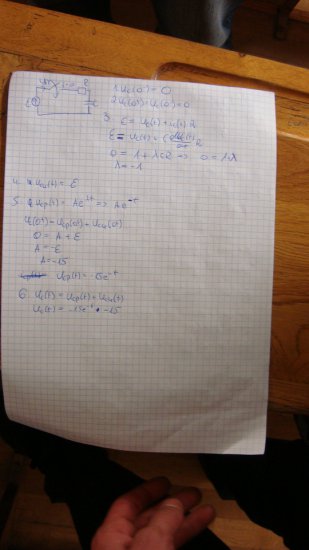 E
R
C
1. Uc(0-) = 0
2. Uc(0+) = Uc(0-) = 0
3. E = Uc(t) + ic(t) R
E = Uc(t) + C dUc(t)/dt R
0 = 1 + λCR => 0 = 1+λ
λ = -1
4. Ucu(t) = E
5. Ucp(t) = Ae^λt => Ae^-t
Uc(0+) = Ucp(0+) + Ucu(0+)
0 = A + E
A = -E
A = -15
Ucp(t) = -15e^-t
6. Uc(t) = Ucp(t) + Ucu(t)
Uc(t) = -15e^-t